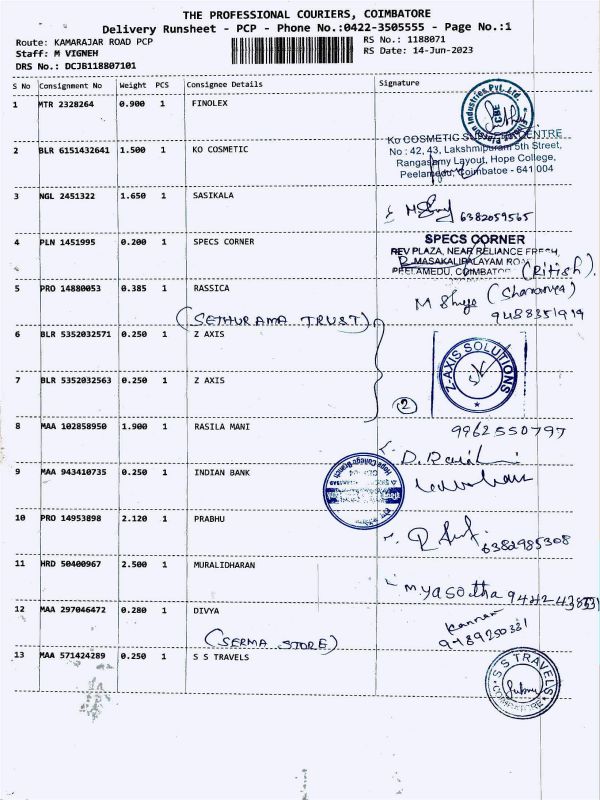 THE PROFESSIONAL COURIERS, COIMBATORE
Delivery Runsheet - PCP - Phone No.:0422-3505555 - Page No.:1
Route: KAMARAJAR ROAD PCP
RS No.: 1188071
Staff: M VIGNEH
RS Date: 14-Jun-2023
DRS No.: DCJB118807101
S No Consignment No Weight PCS Consignee Details Signature
1 MTR 2328264 0.900 1 FINOLEX
Industries Pvt. Ltd.
2 BLR 6151432641 1.500 1 KO COSMETIC
Ko COSMETIC CENTRE
No : 42, 43, Lakshmipuram 5th Street,
Rangasamy Layout, Hope College,
Peelamedu, Coimbatoe - 641 004
3 NGL 2451322 1.650 1 SASIKALA
6382059565
4 PLN 1451995 0.200 1 SPECS CORNER
SPECS CORNER
REV PLAZA, NEAR RELIANCE FRESH,
MASAKALIPALAYAM ROAD
PEELAMEDU, COIMBATO
(Ritish).
5 PRO 14880053 0.385 1 RASSICA
(SETHURAMA TRUST)
9488351919
6 BLR 5352032571 0.250 1 Z AXIS
7 BLR 5352032563 0.250 1 Z AXIS
2
Z-AXIS SOLUTIONS
8 MAA 102858950 1.900 1 RASILA MANI
9962550797
9 MAA 943410735 0.250 1 INDIAN BANK
Hope College Branch
10 PRO 14953898 2.120 1 PRABHU
6382985308
11 HRD 50400967 2.500 1 MURALIDHARAN
M.Yasodha
12 MAA 297046472 0.280 1 DIVYA
(SERMA STORE)
Kannan
9489250331
13 MAA 571424289 0.250 1 S S TRAVELS
S S TRAVELS
COIMBATORE